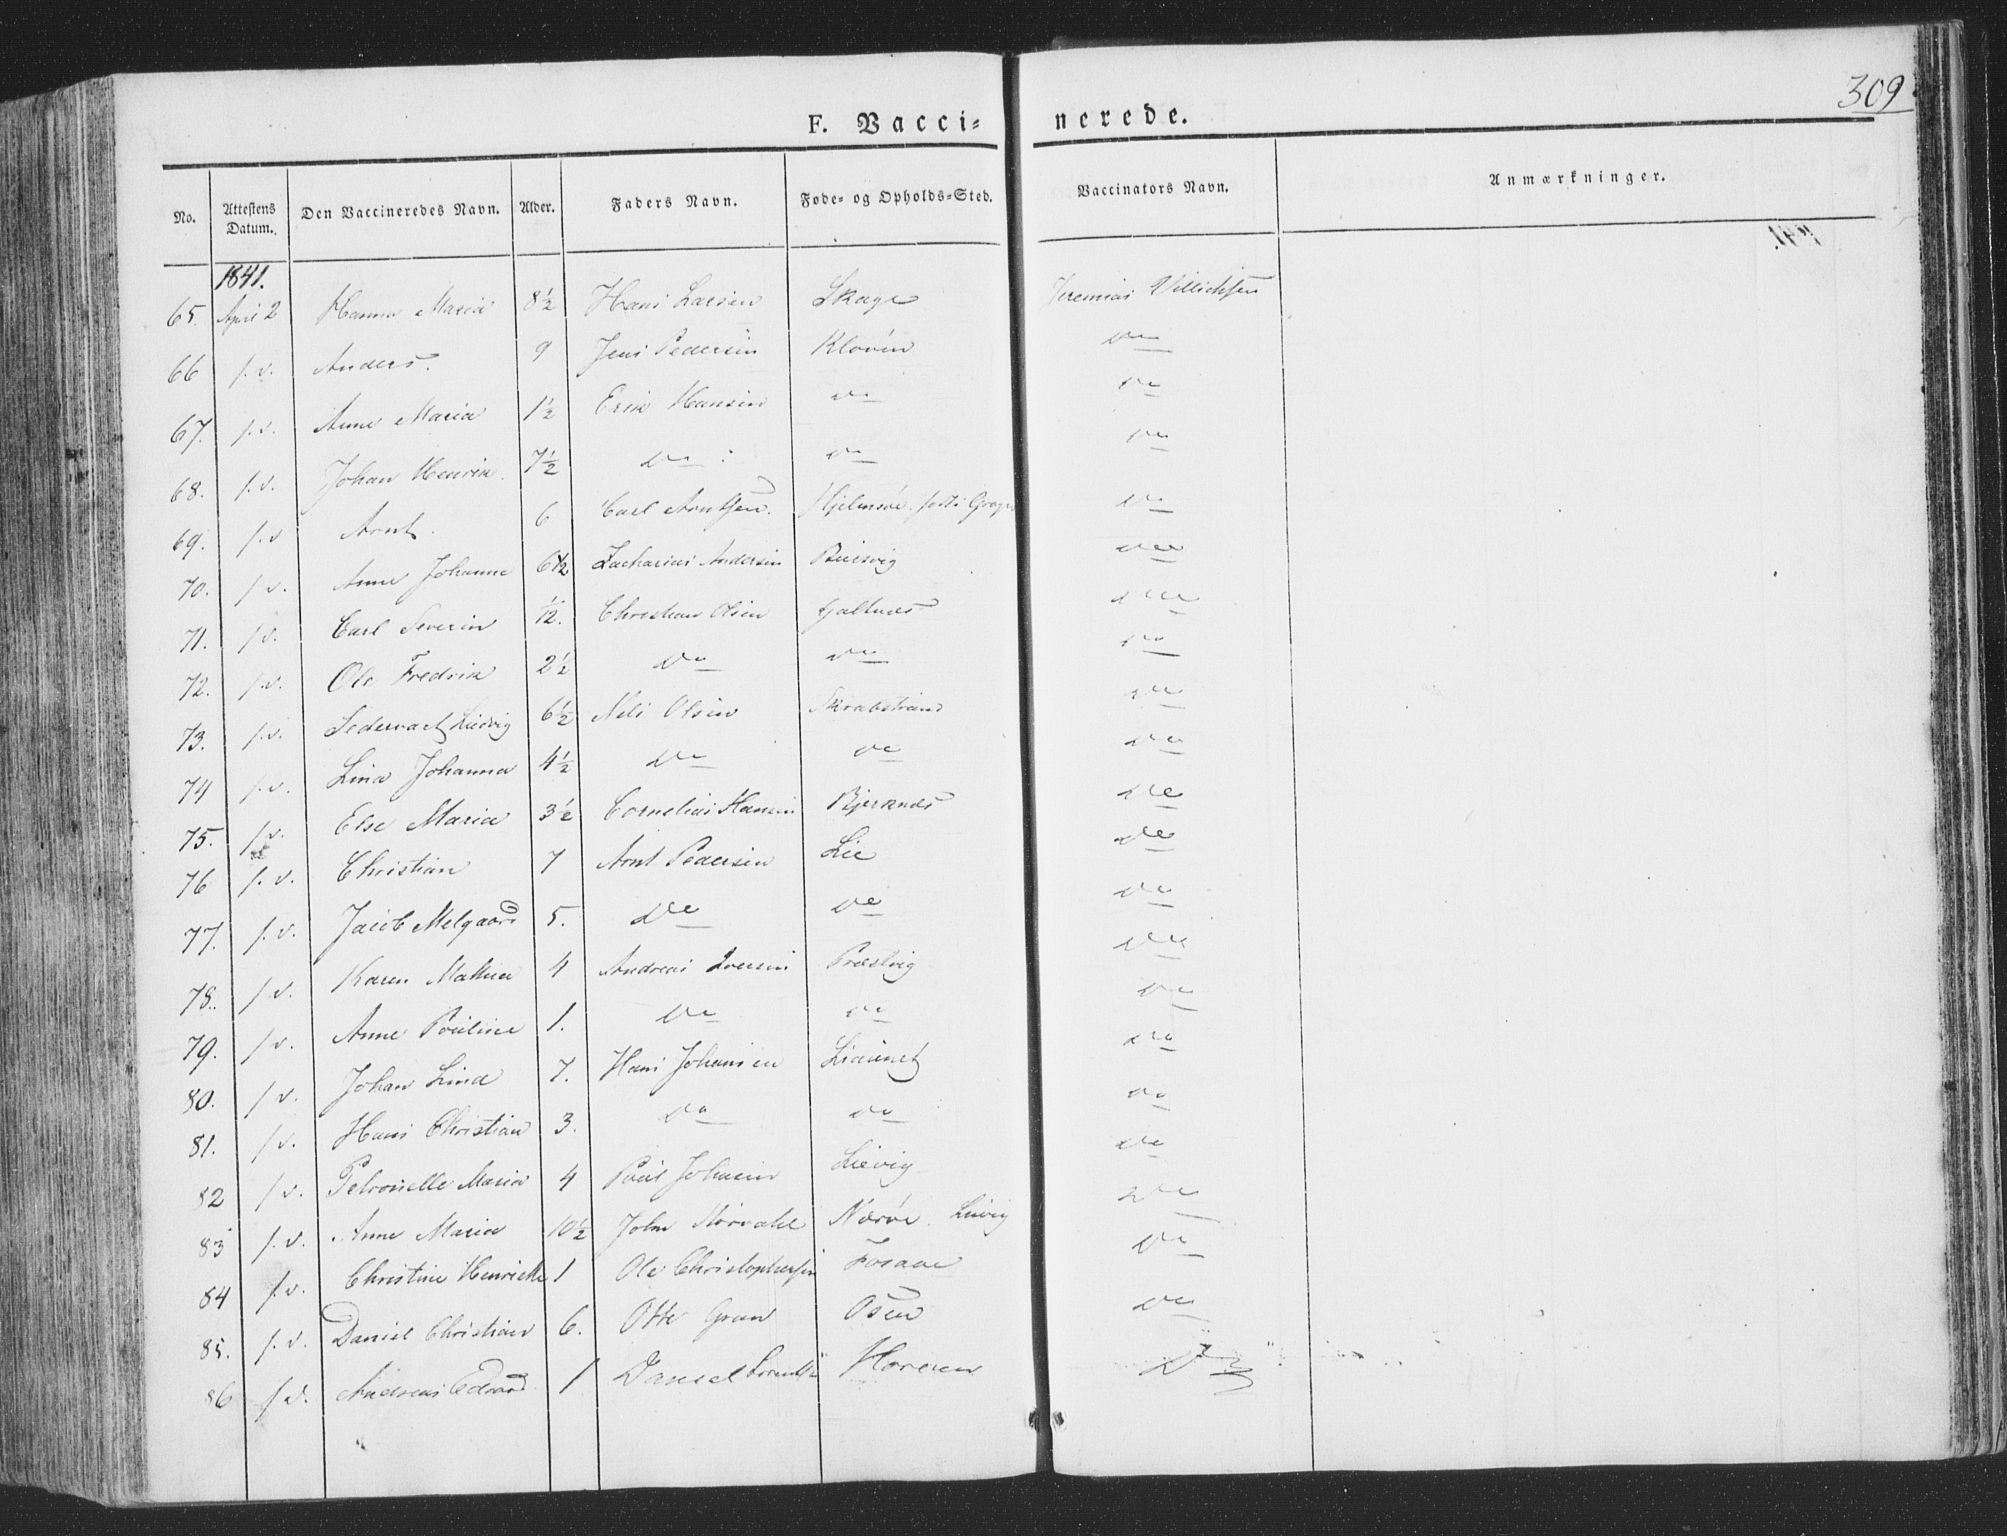 309
F. Vacci= nerede.
No. Attestens Datum. Den Vaccineredes Navn. Alder. Faders Navn. Føde- og Opholds-Sted. Vaccinators Navn. Anmærkninger.
1841.
65. April 2 Hanna Maria 8½ Hans Larsen Skage Jeremias
66 s. d. Anders. 9 Jens Pedersen Kloven do
67. s. d. Anne Maria 1½ Erik Hansen do do
68. s. d. Johan Henrik. 7½ do do do
69. s. d. Arnt. 6 Carl Arntsen. Hjelmsøe. do
70. s. d. Anne Johanna 6½ Zacharias Andersen do
71. s. d. Carl Severin ½. Christian Olsen do
72. s. d. Ole Fredrik 2½ do do do
73. s. d. Ludvig 6½ Nils Olsen Skrabstrand do
74 s. d. Lina Johanna 4½ do do do
75. s. d. Else Maria 3½ Cornelius Hansen do
76 s. d. Christian 7 Arnt Pedersen Lie do
77. s. d. Jacob Melgaard 5. do do do
78. s. d. Karen Mathea 4 Andreas Iversen Præstvig do
79. s. d. Anne Pauline 1. do do do
80. s. d. Johan Lind 7. Hans Johansen do
81. s. d. Hans Christian 3. do do do
82 s. d. Petronelle Maria 4 Paul Johnsen Lievig do
83 s. d. Anne Maria 10½ John Nærøe. Lievig do
84 s. d. Christine Henriette 1 Ole Christophersen Fosaae do
85. s. d. Daniel Christian 6. Otte Gran Osen do
86 s. d. Andreas Edvard 1 Daniel do